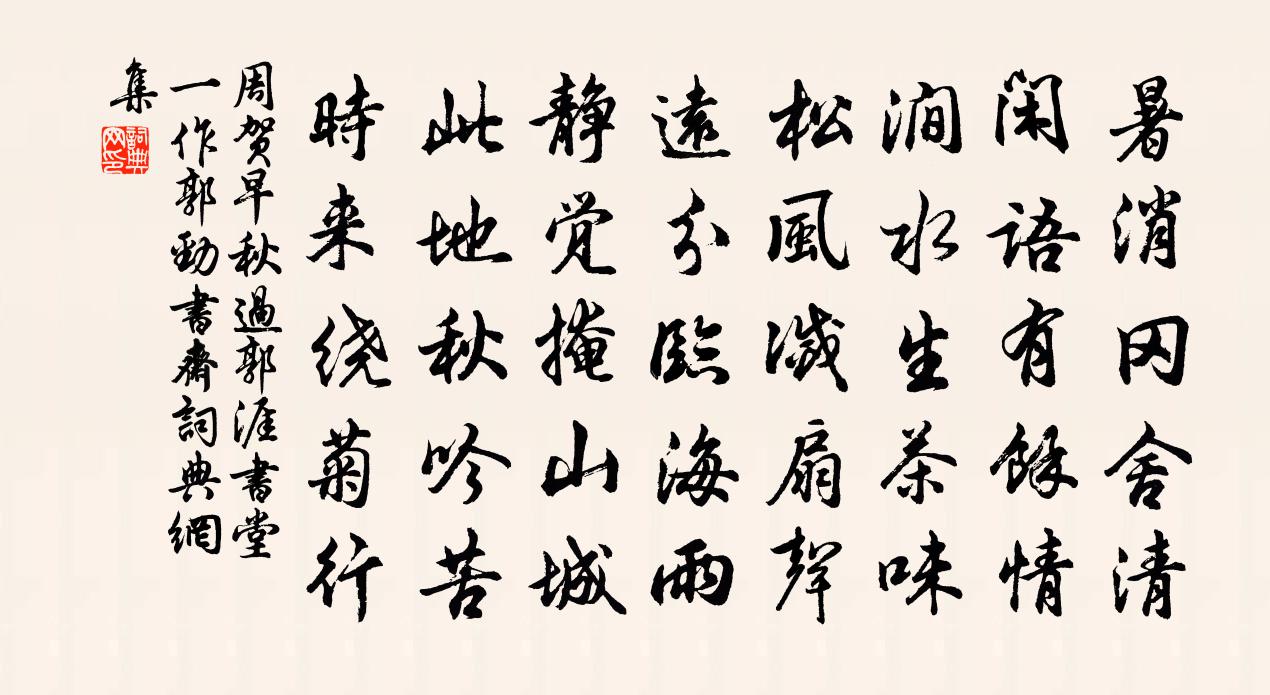 暑消冈舍清
闲語有餘情
澗水生茶味
松風滅扇聲
遠分臨海雨
静觉掩山城
此地秋吟苦
時来绕菊行
周贺早秋過郭涯書堂
一作郭勁書齋詞典網
集
詞典
网印